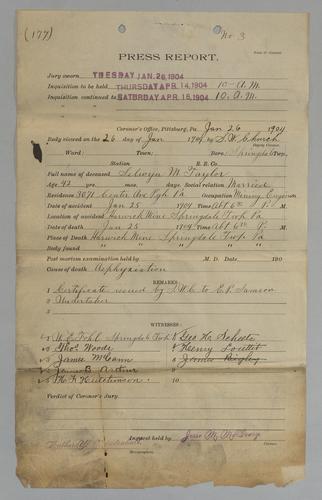 (177)
No 3
PRESS REPORT.
Jury sworn TUESDAY JAN. 26 1904
Inquisition to be held THURSDAY APR. 14, 1904 10- A.M.
Inquisition continued to SATURDAY APR. 16, 1904 10. A.M.
" " "
Coroner's Office, Pittsburg, Pa. Jan 26 1904
Body viewed on the 26 day of Jan 1904 by
Deputy Coroner.
Ward: Town: Boro: Springdale Twp.
Station R. R. Co.
Full name of deceased Selwyn M. Taylor
Age 42 yrs. mos. days. Social relation Married
Residence Centre Ave Pgh Pa Occupation Mining Engineer
Date of accident Jan 25 1904 Time Abt P. M.
Location of accident Harwick Mine Springdale Twp Pa
Date of death Jan 25 1904 Time Abt P. M.
Place of Death Harwick Mine Springdale Twp Pa
Body found " " " "
Post mortem examination held by M. D. Date 190
Cause of death Asphyxiation
REMARKS:
1 Certificate issued by to Samson
2 Undertaker
3
WITNESSES:
1 Springdale Twp 6 Geo H.
2 Thos Wood 7 Henry Louttit
3 James McCann 8 James
4 James B. Arthur 9
5 H. F. Hutchinson 10
Verdict of Coroner's Jury.
Inquest held by Jesse M. McGeary
Coroner.
Stenographer.